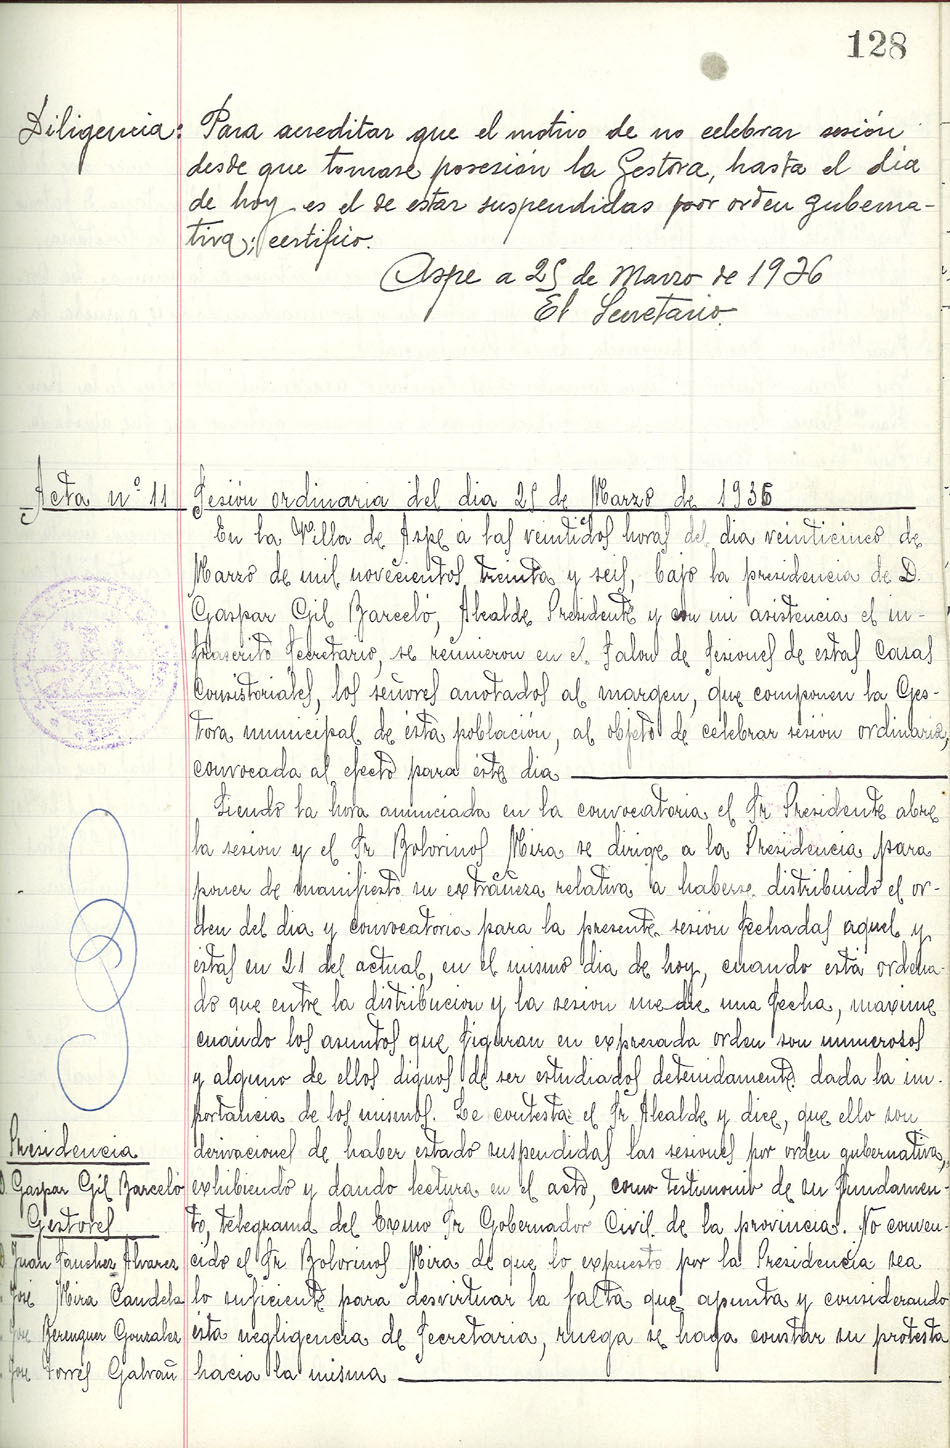 128
Diligencia: Para acreditar que el motivo de no celebrar sesión
desde que tomase posesión la Gestora, hasta el dia
de hoy es el de estar suspendidas por orden guberna-
tiva; certifico.
Aspe a 25 de Marzo de 1936
El Secretario.
Acta nº 11 Sesión ordinaria del dia 25 de Marzo de 1936
En la Villa de Aspe a las veintidos horas del dia veinticinco de
Marzo de mil novecientos treinta y seis, bajo la presidencia de D.
Gaspar Gil Barceló, Alcalde Presidente y con mi asistencia el in-
frascrito Secretario, se reunieron en el Salon de Sesiones de estas Casas
Consistoriales, los señores anotados al margen, que componen la Ges-
tora municipal de ésta población, al objeto de celebrar sesión ordinaria,
convocada al efecto para éste dia
Siendo la hora anunciada en la convocatoria el Sr Presidente abre
la sesion y el Sr Bolorinos Mira se dirige a la Presidencia para
poner de manifiesto su extrañeza relativa a haberse distribuido el or-
den del dia y convocatoria para la presente sesión fechadas aquel y
éstas en 21 del actual, en el mismo dia de hoy, cuando está ordena-
do que entre la distribucion y la sesion medie una fecha, maxime
cuando los asuntos que figuran en expresada orden son numerosos
y alguno de ellos dignos de ser estudiados detenidamente dada la im-
portancia de los mismos. Le contesta el Sr Alcalde y dice, que ello son
derivaciones de haber estado suspendidas las sesiones por orden gubernativa,
exhibiendo y dando lectura en el acto, como testimonio de su fundamen-
to, telegrama del Exmo Sr Gobernador Civil de la provincia. No conven-
cido el Sr Bolorinos Mira de que lo expuesto por la Presidencia sea
lo suficiente para desvirtuar la falta que apunta y considerando
ésta negligencia de Secretaria, ruega se haga constar su protesta
hacia la misma
Presidencia
D. Gaspar Gil Barceló
Gestores
D. Juan Sanchez Alvarez
Jose Mira Candela
Jose Berenguer Gonzalez
Jose Torres Galvañ